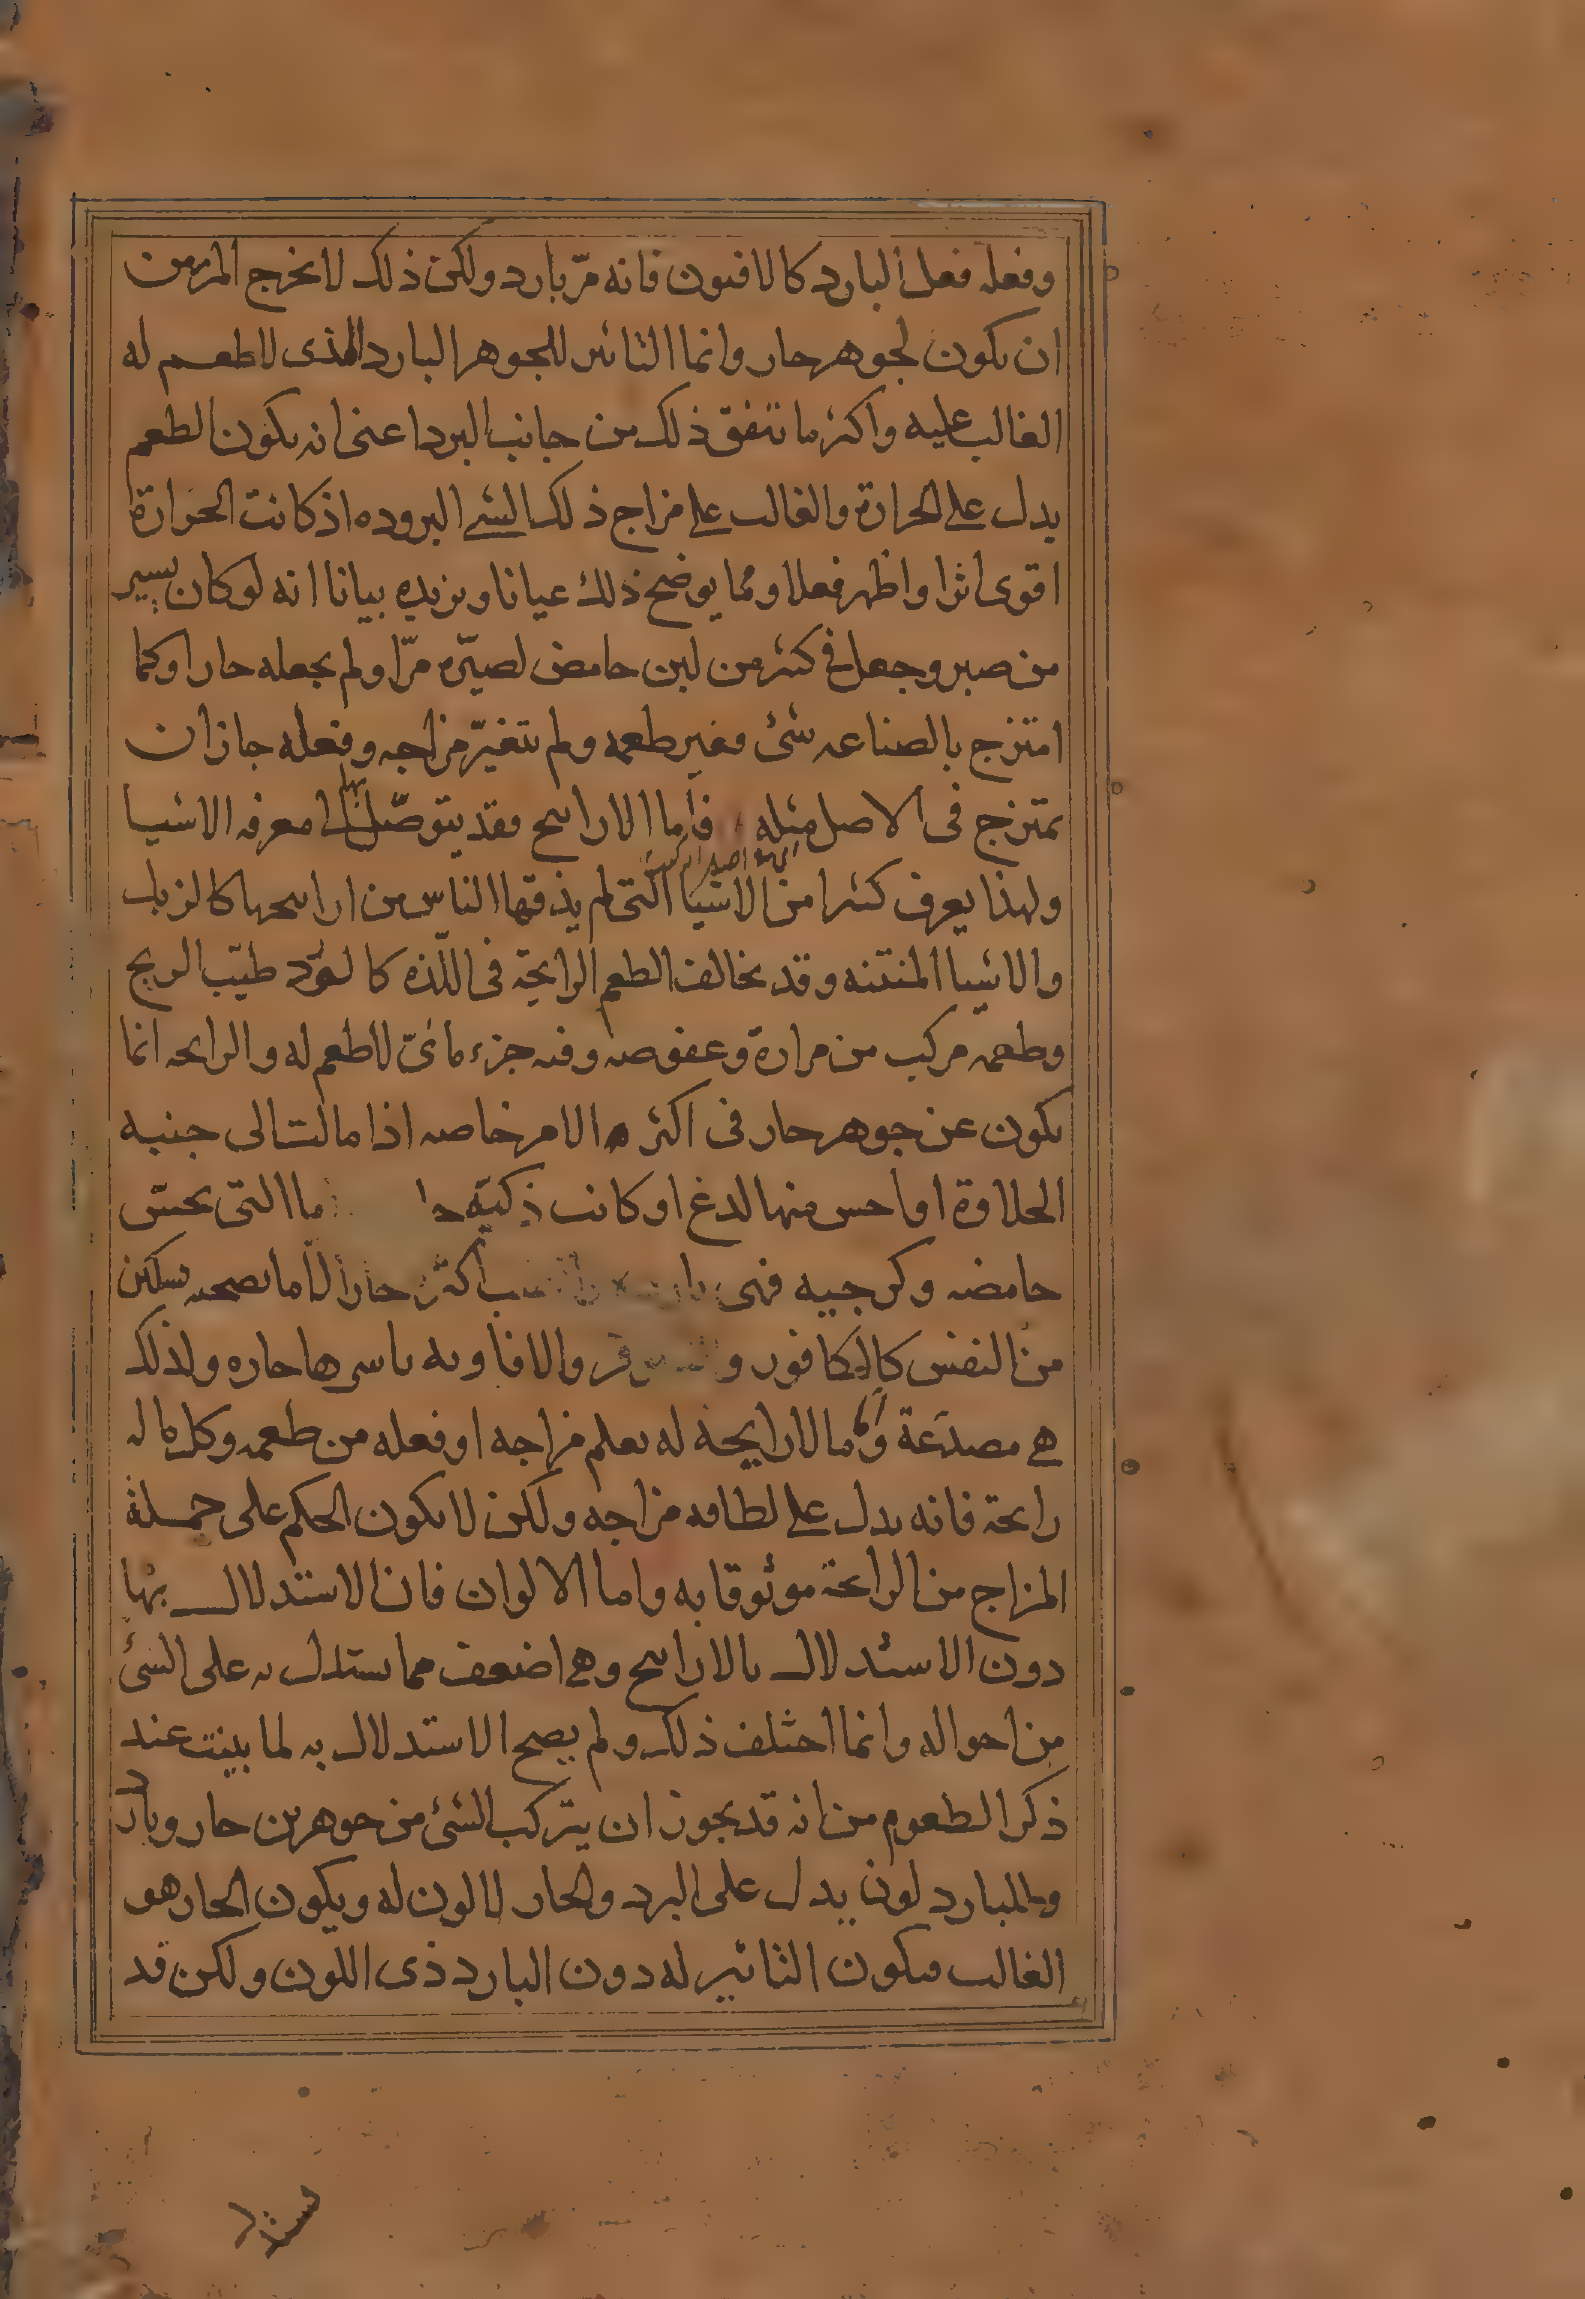 وفعله فعل البارد كالافيون فانه مرّ بارد ولكن ذلك لا يخرج المر من
ان يكون لجوهر حار وانما التاثير للجوهر البارد الذى لا طعم له
الغالب عليه واكثر ما يتفق ذلك من جانب البرد اعنى انه يكون الطعم
يدل على الحرارة والغالب على مزاج ذلك الشى البروده اذ كانت الحرارة
اقوى اثرا واظهر فعلا ومما يوضح ذلك عيانا ويزيده بيانا انه لو كان يسير
من صبر وجعل فى كثير من لبن حامض لصيّره مرّا ولم يجعله حارا وكما
امتزج بالصناعه شئ فغير طعمه ولم يتغيّر مزاجه وفعله جاز ان
يمتزج فى الاصل مثله فاما الاراييح فقد يتوصّل بها الى معرفه الاشيا
ولهذا يعرف كثيرا من الاشيا التى لم يذقها الناس من اراييحها كالزبل
والاشيا المنتنه وقد يخالف الطعم الرايحة فى اللّذه كالورد طيّب الريح
وطعمه مركب من مرارة وعفوصه وفيه جزء مائىّ لا طعم له والرايحه انما
يكون عن جوهر حار فى اكثر الامر خاصه اذا مالت الى جنبه
الحلاوة او احس منها لدغ او كانت ذكيّه اما التى يحسّ
حامضه وكرجيه فهى اكثر حارا الا ما يصحبه تسكين
من النفس كالكافور و والافاويه باسرها حاره ولذلك
هى مصدّعة وأما ما لا رايحة له يعلم مزاجه او فعله من طعمه وكل ما له
رايحة فانه يدل على لطافه مزاجه ولكن لا يكون الحكم على جملة
المزاج من الرايحة موثوقا به واما الالوان فان الاستدلال بها
دون الاستدلال بالاراييح وهى اضعف مما يستدل به على الشئ
من احواله وانما اختلف ذلك ولم يصح الاستدلال به لما بينت عند
ذكر الطعوم من انه قد يجوز ان يتركب الشئ من جوهرين حار وبارد
وللبارد لون يدل على البرد والحار لا لون له ويكون الحار هو
الغالب فيكون التاثير له دون البارد ذى اللون ولكن قد